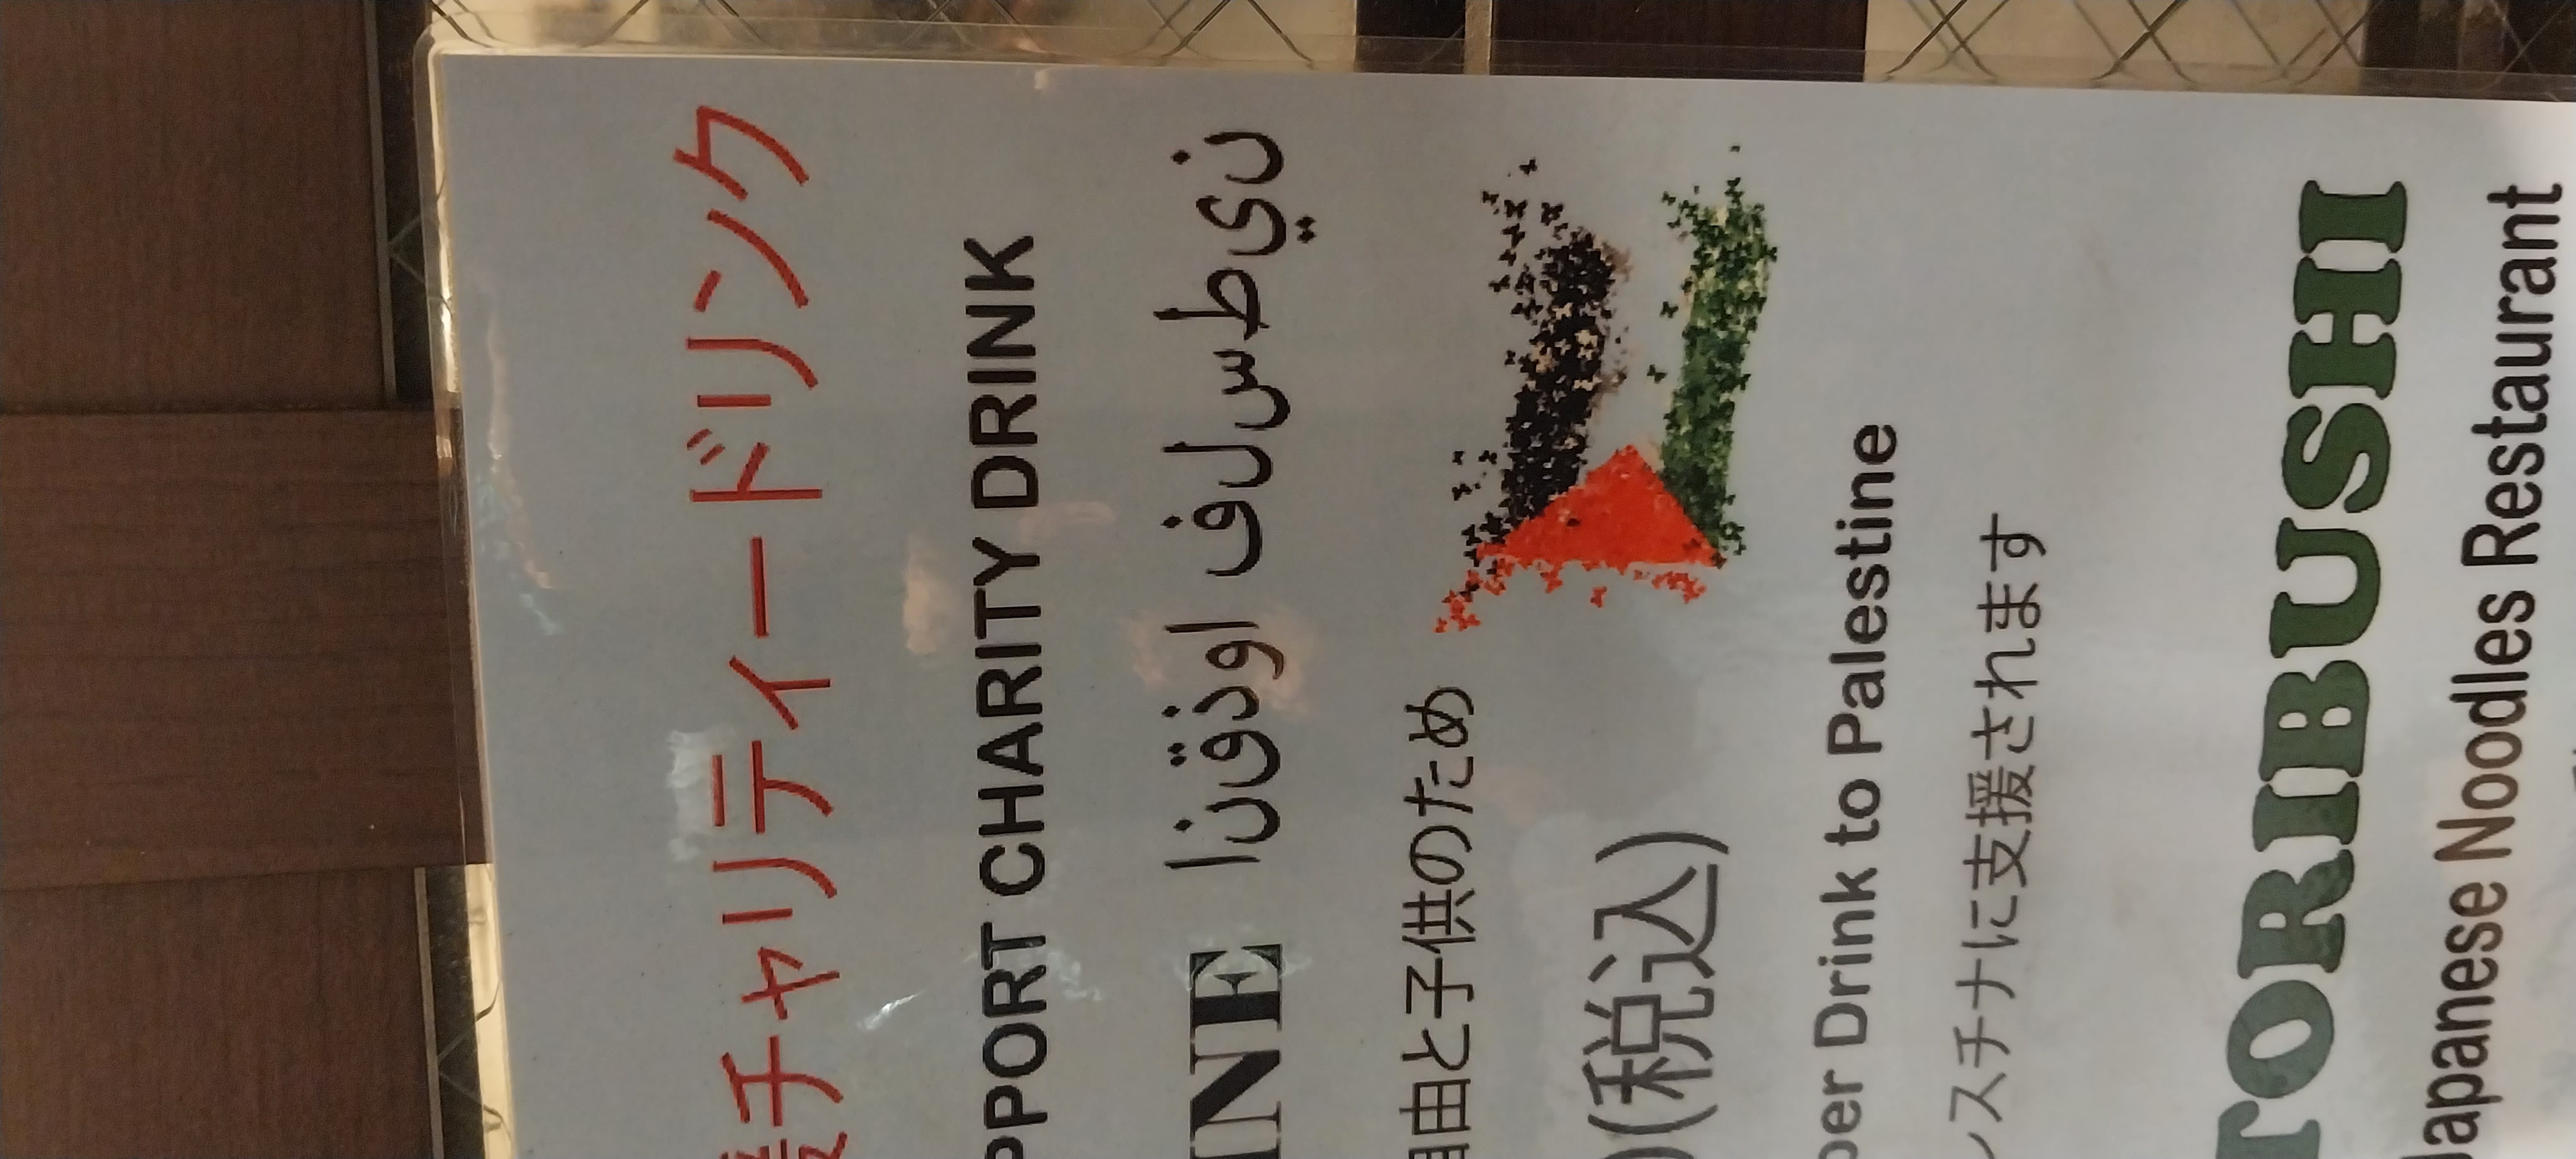 援チャリティードリンク
PPORT CHARITY DRINK
INE ا ن ق ذ و ا ف ل س ط ي ن
自由と子供のため
)(税込)
per Drink to Palestine
スチナに支援されます
TORIBUSHI
Japanese Noodles Restaurant